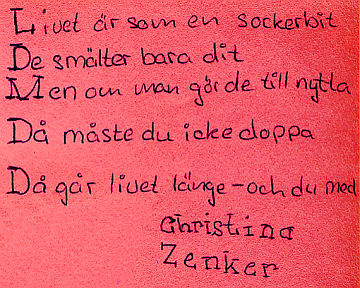 Livet är som en sockerbit
De smälter bara dit
Men om man gör de till nytta
Då måste du icke doppa
Då går livet länge - och du med
Christina
Zenker